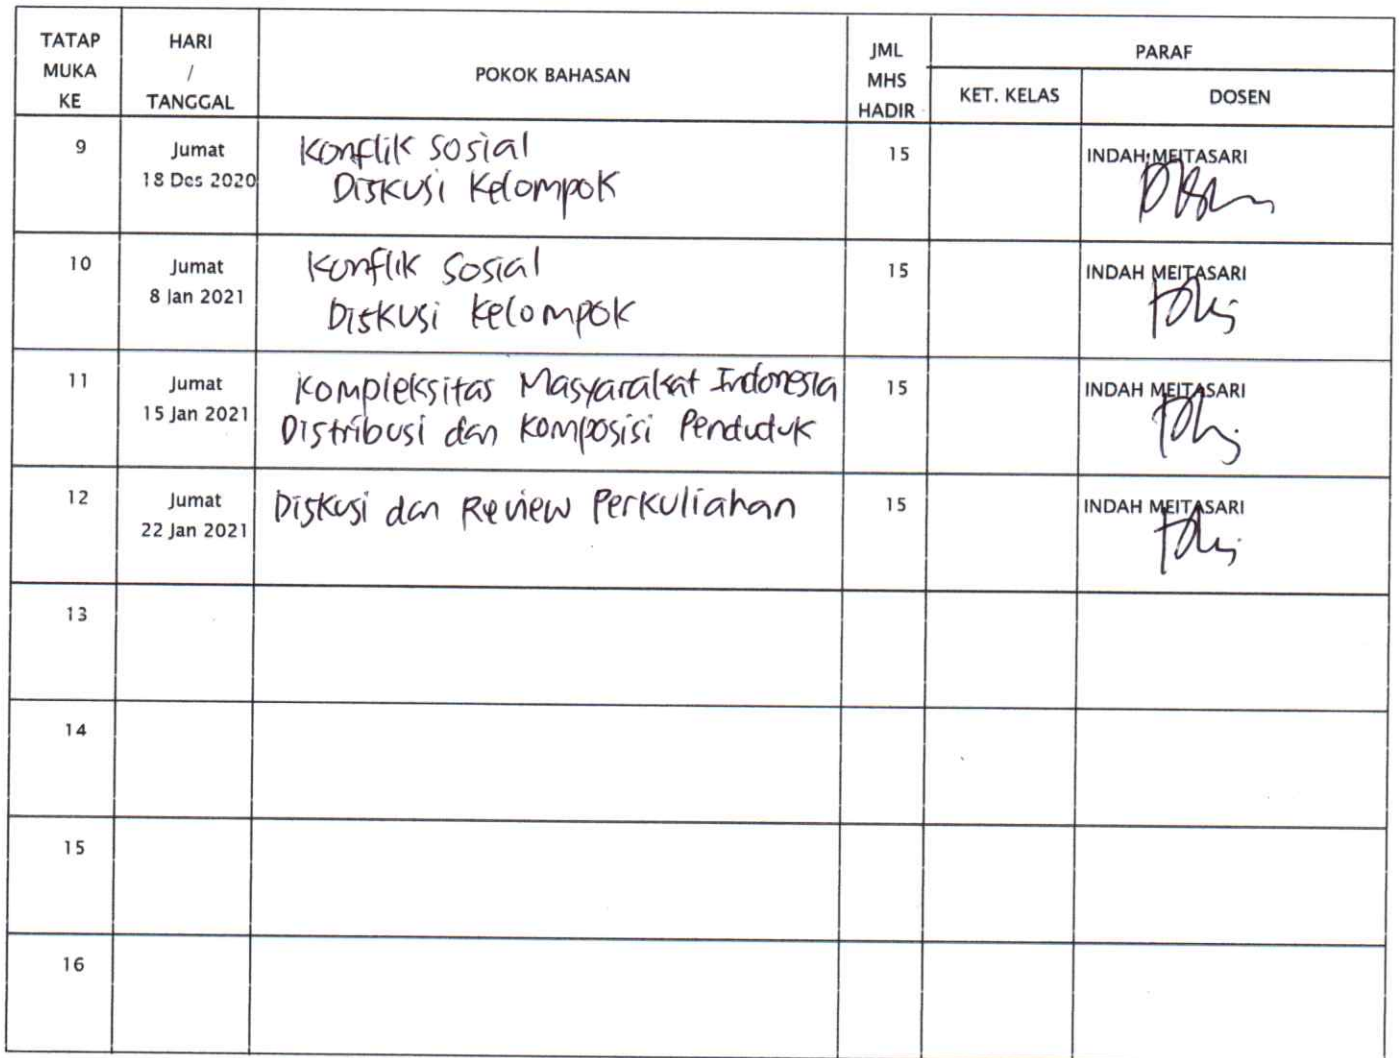 TATAP
MUKA
KE
HARI
/
TANGGAL
POKOK BAHASAN
JML
MHS
HADIR
PARAF
KET. KELAS
DOSEN
9
Jumat
18 Des 2020
Konflik Sosial
Diskusi Kelompok
15
INDAH MEITASARI
10
Jumat
8 Jan 2021
Konflik Sosial
Diskusi Kelompok
15
INDAH MEITASARI
11
Jumat
15 Jan 2021
Kompleksitas Masyarakat Indonesia
Distribusi dan Komposisi Penduduk
15
INDAH MEITASARI
12
Jumat
22 Jan 2021
Diskusi dan Review Perkuliahan
15
INDAH MEITASARI
13
14
15
16